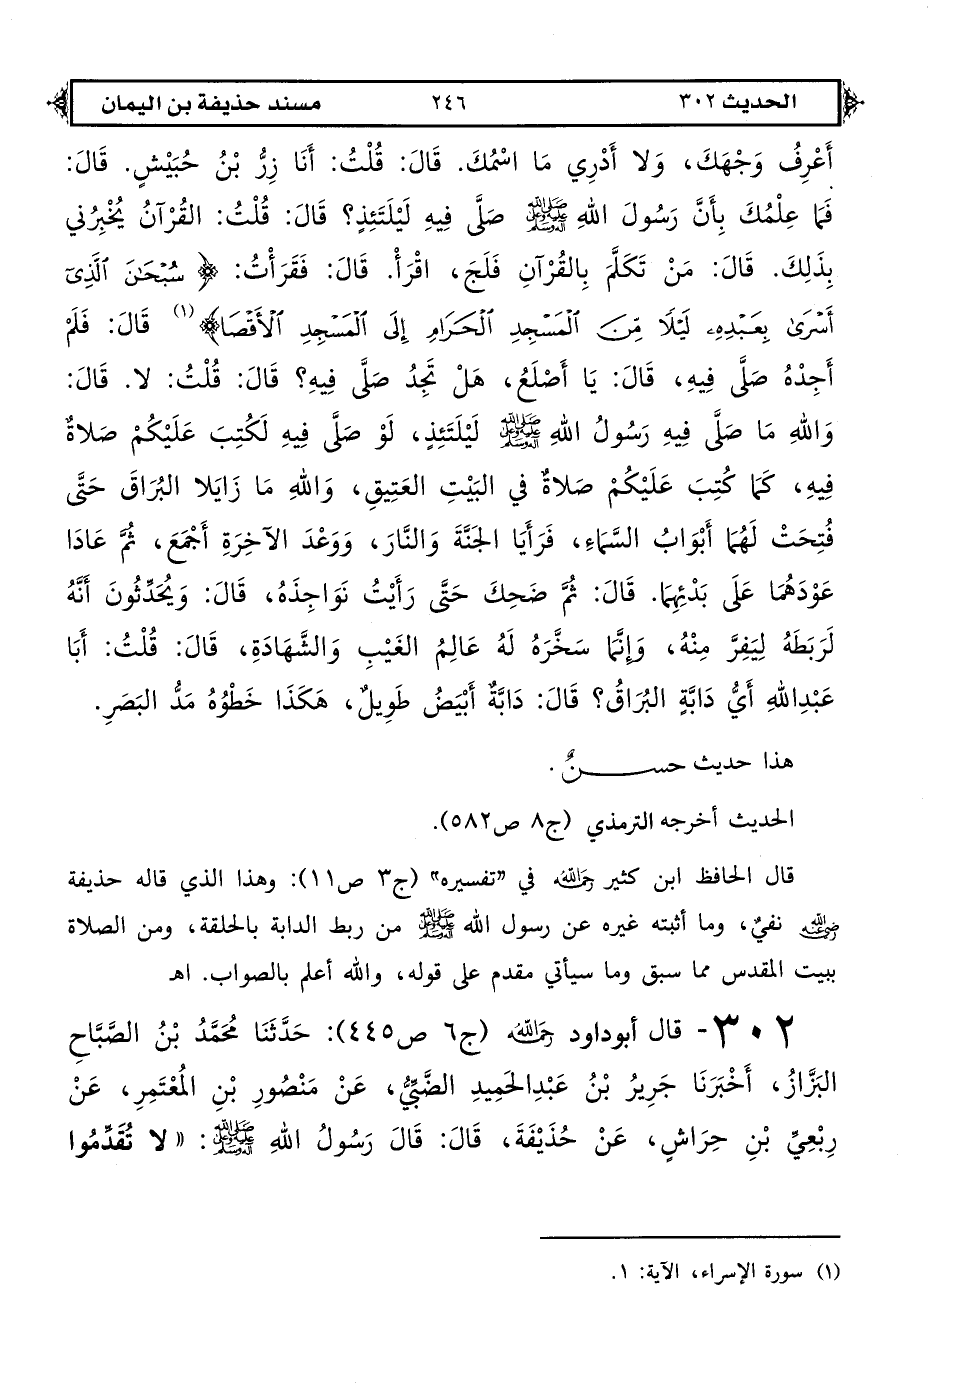 الحديث ٣٠٢ ٢٤٦ مسند حذيفة بن اليمان
أَعْرِفُ وَجْهَكَ، وَلا أَدْرِي مَا اسْمُكَ. قَالَ: قُلْتُ: أَنَا زِرُّ بْنُ حُبَيْشٍ. قَالَ:
فَمَا عِلْمُكَ بِأَنَّ رَسُولَ اللهِ ﷺ صَلَّى فِيهِ لَيْلَتَئِذٍ؟ قَالَ: قُلْتُ: القُرْآنُ يُخْبِرُنِي
بِذَلِكَ. قَالَ: مَنْ تَكَلَّمَ بِالقُرْآنِ فَلَجَ، اقْرَأْ. قَالَ: فَقَرَأْتُ: ﴿سُبْحَٰنَ ٱلَّذِىٓ
أَسْرَىٰ بِعَبْدِهِۦ لَيْلًا مِّنَ ٱلْمَسْجِدِ ٱلْحَرَامِ إِلَى ٱلْمَسْجِدِ ٱلْأَقْصَا﴾(١) قَالَ: فَلَمْ
أَجِدْهُ صَلَّى فِيهِ، قَالَ: يَا أَصْلَعُ، هَلْ تَجِدُ صَلَّى فِيهِ؟ قَالَ: قُلْتُ: لا. قَالَ:
وَاللهِ مَا صَلَّى فِيهِ رَسُولُ اللهِ ﷺ لَيْلَتَئِذٍ، لَوْ صَلَّى فِيهِ لَكُتِبَ عَلَيْكُمْ صَلاةٌ
فِيهِ، كَمَا كُتِبَ عَلَيْكُمْ صَلاةٌ فِي البَيْتِ العَتِيقِ، وَاللهِ مَا زَايَلا البُرَاقَ حَتَّى
فُتِحَتْ لَهُمَا أَبْوَابُ السَّمَاءِ، فَرَأَيَا الجَنَّةَ وَالنَّارَ، وَوَعْدَ الآخِرَةِ أَجْمَعَ، ثُمَّ عَادَا
عَوْدَهُمَا عَلَى بَدْئِهِمَا. قَالَ: ثُمَّ ضَحِكَ حَتَّى رَأَيْتُ نَوَاجِذَهُ، قَالَ: وَيُحَدِّثُونَ أَنَّهُ
لَرَبَطَهُ لِيَفِرَّ مِنْهُ، وَإِنَّمَا سَخَّرَهُ لَهُ عَالِمُ الغَيْبِ وَالشَّهَادَةِ، قَالَ: قُلْتُ: أَبَا
عَبْدِاللهِ أَيُّ دَابَّةٍ البُرَاقُ؟ قَالَ: دَابَّةٌ أَبْيَضُ طَوِيلٌ، هَكَذَا خَطْوُهُ مَدُّ البَصَرِ.
هذا حديث حســـــنٌ.
الحديث أخرجه الترمذي (ج٨ ص٥٨٢).
قال الحافظ ابن كثير رحمه الله في "تفسيره" (ج٣ ص١١): وهذا الذي قاله حذيفة
رضي الله عنه نفيٌ، وما أثبته غيره عن رسول الله ﷺ من ربط الدابة بالحلقة، ومن الصلاة
ببيت المقدس مما سبق وما سيأتي مقدم على قوله، والله أعلم بالصواب. اهـ
٣٠٢- قال أبوداود رحمه الله (ج٦ ص٤٤٥): حَدَّثَنَا مُحَمَّدُ بْنُ الصَّبَّاحِ
البَزَّازُ، أَخْبَرَنَا جَرِيرُ بْنُ عَبْدِالحَمِيدِ الضَّبِّيُّ، عَنْ مَنْصُورِ بْنِ المُعْتَمِرِ، عَنْ
رِبْعِيِّ بْنِ حِرَاشٍ، عَنْ حُذَيْفَةَ، قَالَ: قَالَ رَسُولُ اللهِ ﷺ: «لا تُقَدِّمُوا
(١) سورة الإسراء، الآية: ١.